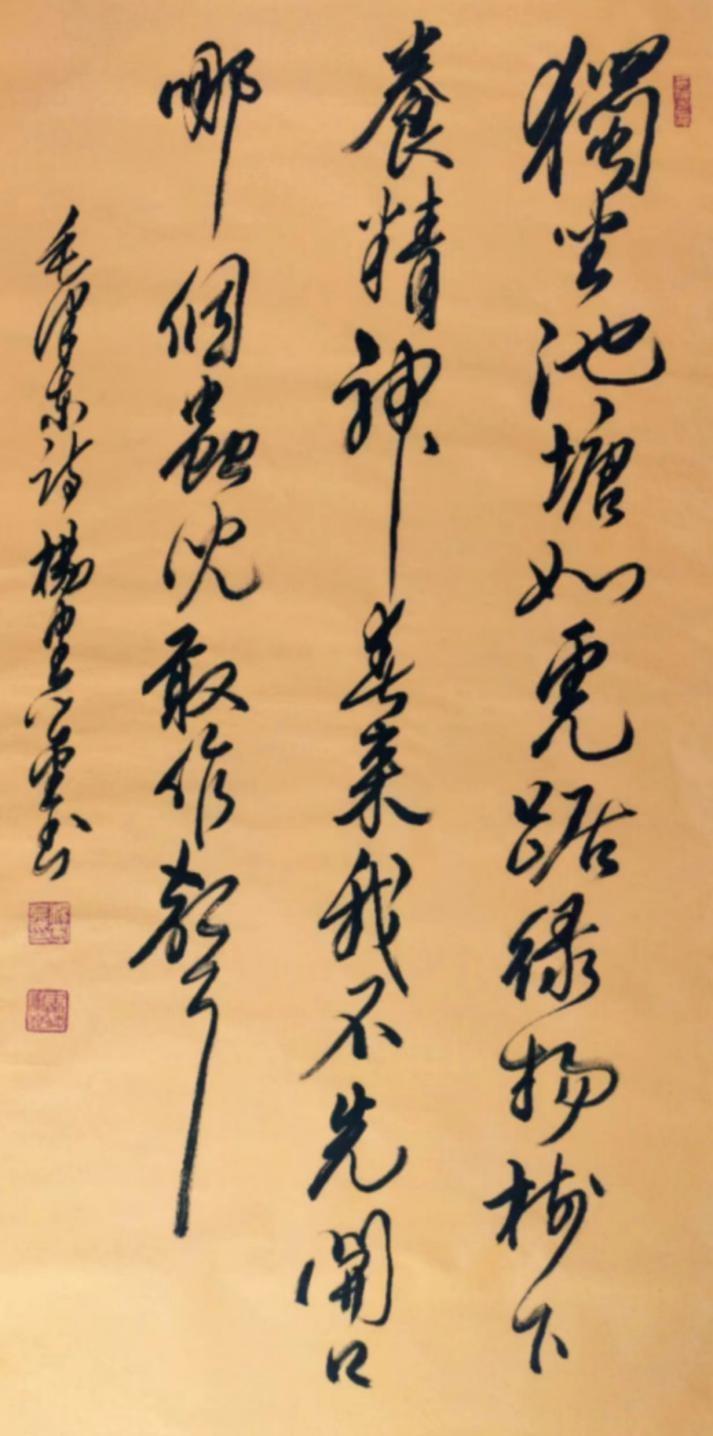 獨坐池塘如虎踞綠楊樹下
養精神春來我不先開口
哪個蟲兒敢作聲
毛澤東詩楊書